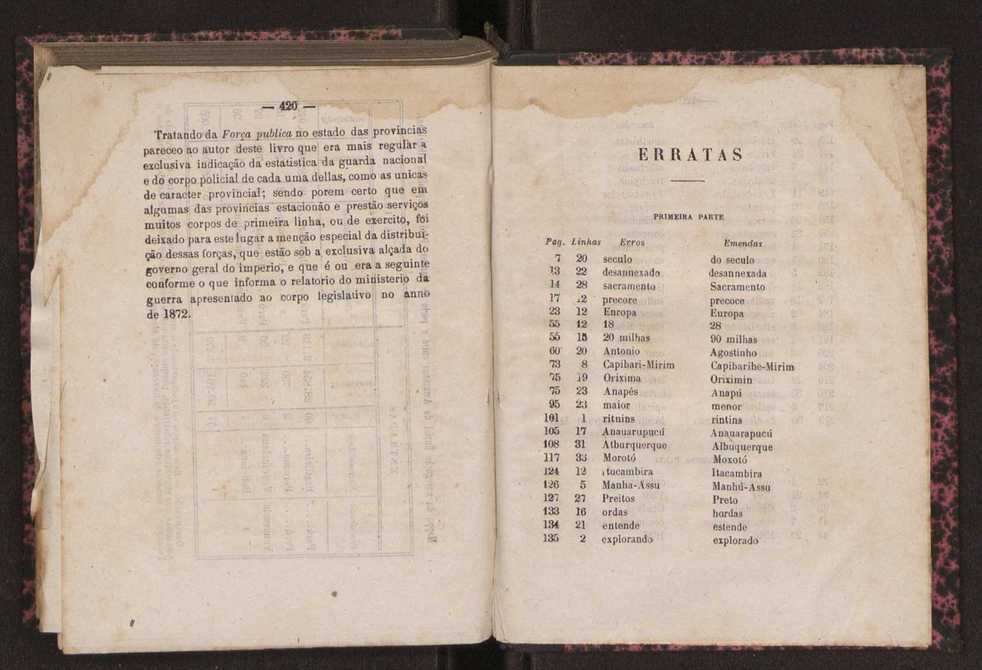 — 420 —
Tratando da Força publica no estado das provincias
pareceo ao autor deste livro que era mais regular a
exclusiva indicação da estatistica da guarda nacional
e do corpo policial de cada uma dellas, como as unicas
de caracter provincial; sendo porem certo que em
algumas das provincias estacionão e prestão serviços
muitos corpos de primeira linha, ou de exercito, foi
deixado para este lugar a menção especial da distribui-
ção dessas forças, que estão sob a exclusiva alçada do
governo geral do imperio, e que é ou era a seguinte
conforme o que informa o relatorio do ministerio da
guerra apresentado ao corpo legislativo no anno
de 1872.
ERRATAS
PRIMEIRA PARTE
Pag. Linhas Erros Emendas
7 20 seculo do seculo
13 22 desannexado desannexada
14 28 sacramento Sacramento
17 12 precore precoce
23 12 Enropa Europa
55 12 18 28
55 15 20 milhas 90 milhas
60 20 Antonio Agostinho
73 8 Capibari-Mirim Capibaribe-Mirim
75 19 Orixima Oriximin
75 23 Anapés Anapú
95 23 maior menor
101 1 ritnins rintins
105 17 Anauarupucú Anauarapucú
108 31 Atburquerque Albuquerque
117 33 Morotó Moxotó
124 12 Itucambira Itacambira
126 5 Manha-Assu Manhú-Assu
127 27 Preitos Preto
133 16 ordas hordas
134 21 entende estende
135 2 explorando explorado